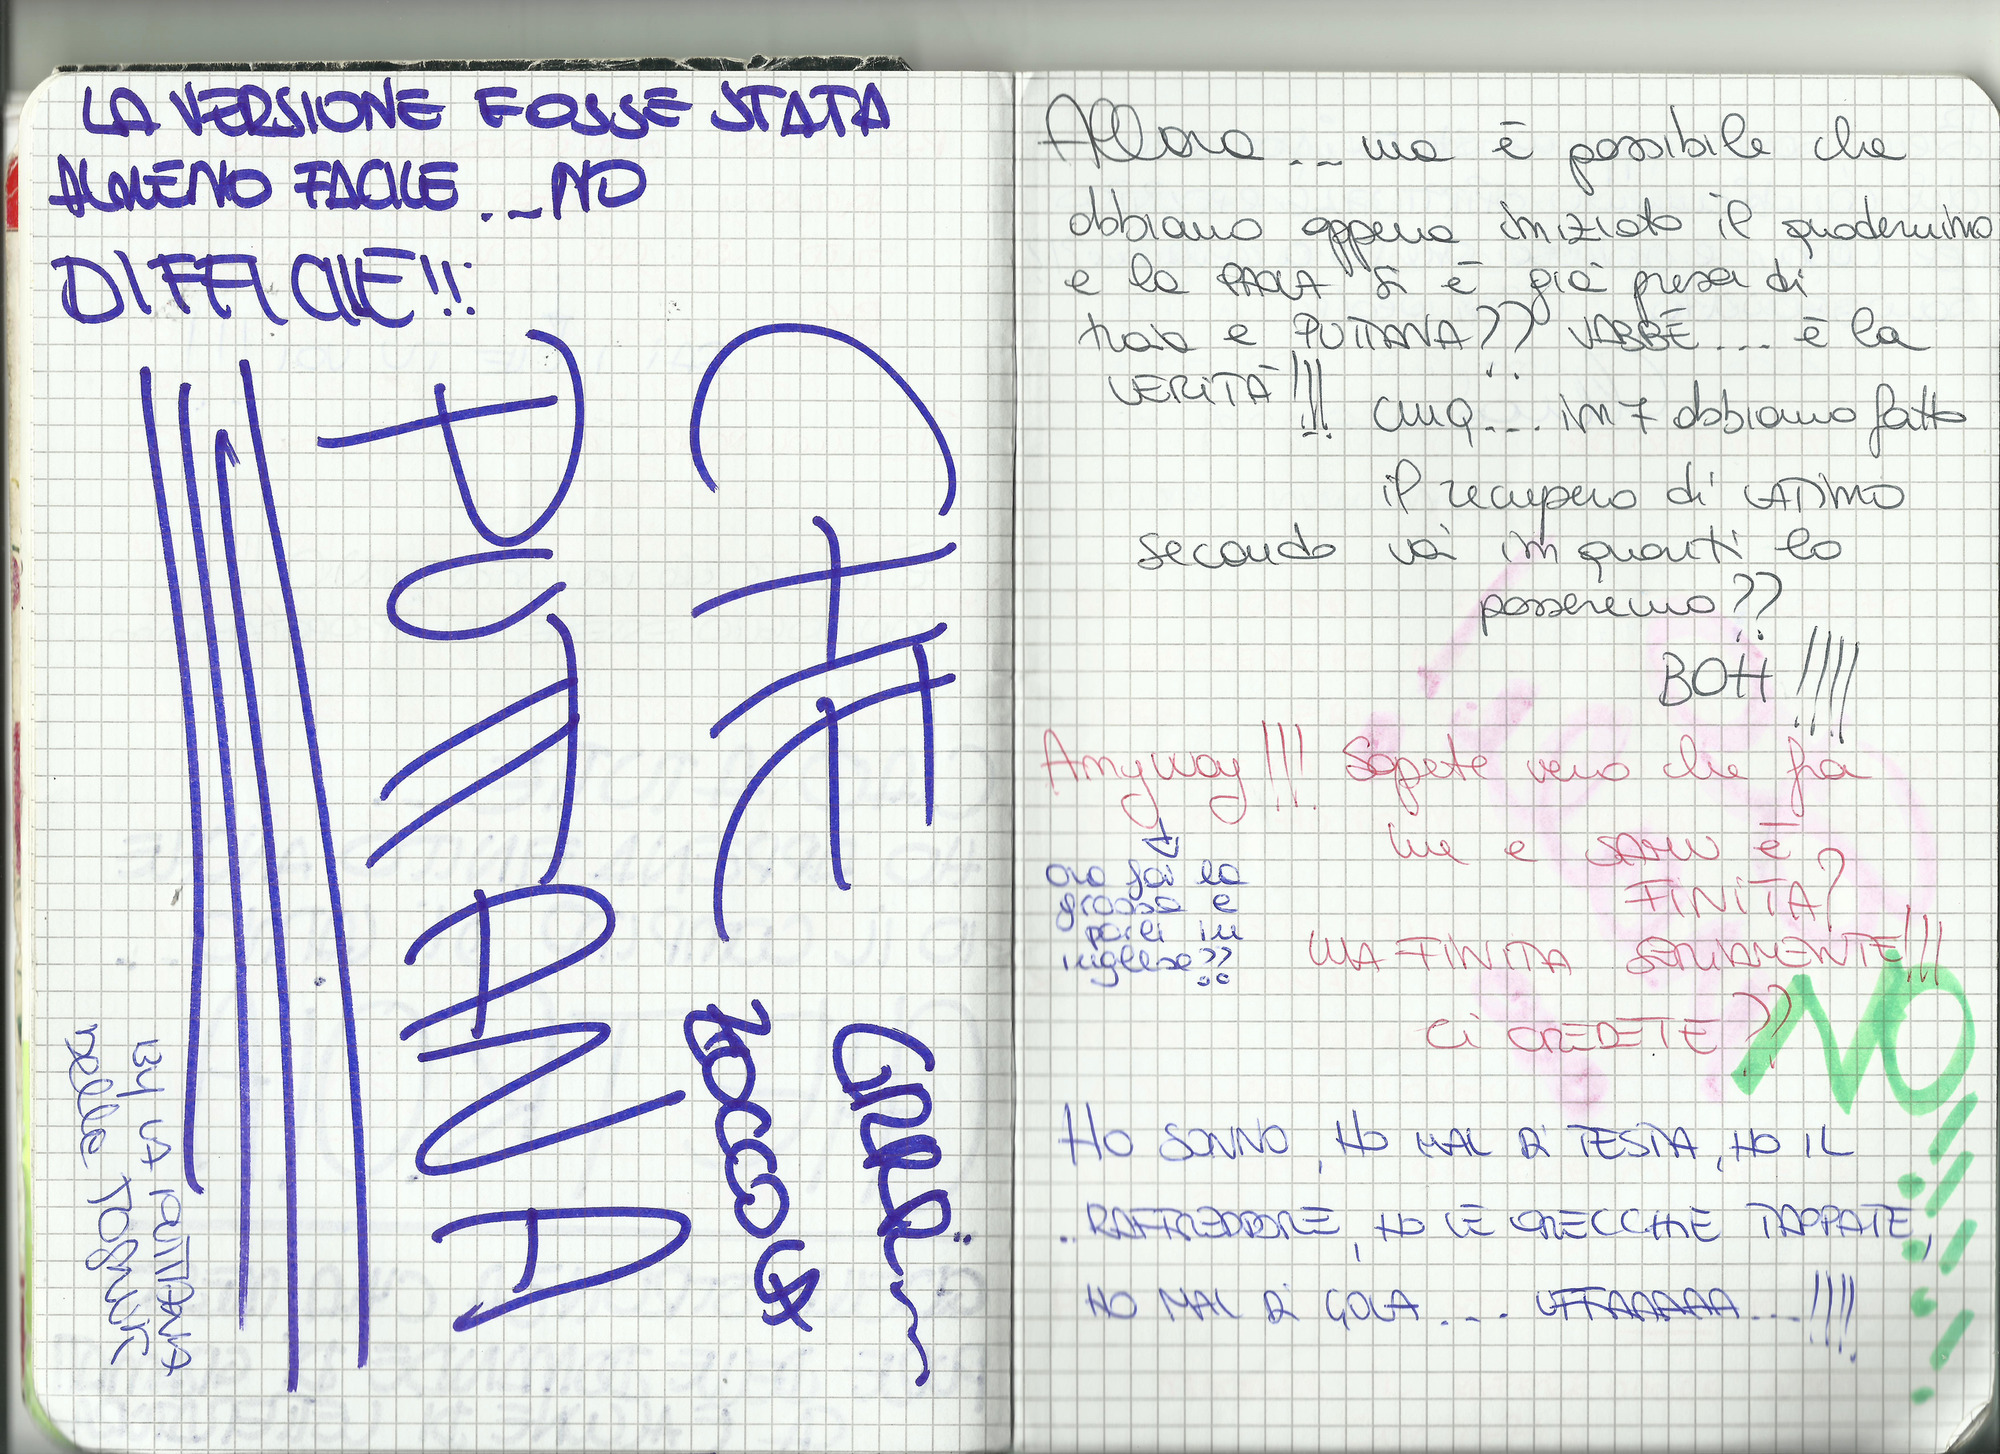 LA VERSIONE FOSSE STATA
ALMENO FACILE... NO
DIFFICILE!!!
CHE
PUTTANA
ZOCCOLA
BY LA PUTTANA
delle TOGNIR
Allora... ma è possibile che
abbiamo appena iniziato il quadernino
e la PAOLA si è già presa di
troia e PUTTANA?? VABBÈ... è la
VERITÀ!!!
CMQ... in 7 abbiamo fatto
il recupero di LATINO
secondo voi in quanti lo
passeremo??
BOH!!!!
Anyway!!! Sapete vero che fra
me e SAMU è
FINITA?
MA FINITA SERIAMENTE!!!
CI CREDETE??
NO!!!!
ora fai la
grossa e
parli in
inglese??
HO SONNO, HO MAL DI TESTA, HO IL
RAFFREDDORE, HO LE ORECCHIE TAPPATE,
HO MAL DI GOLA.... UFFAAAAAA...!!!!